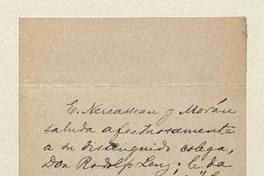 E. Nercasseau y Morán
saluda afectuosamente
a su distinguido colega,
Don Rodolfo Lenz; le da